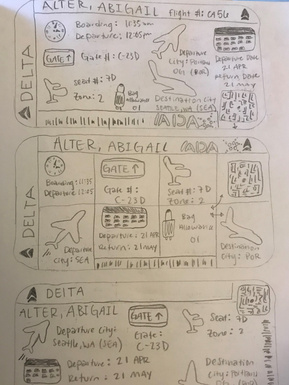 ALTER, ABIGAIL Flight #: CA56
Boarding: 11:35am
Departure: 12:05pm
Departure City:
GATE ↑ Gate #: C-23D
Departure Date
21 APR
Return Date
21 MAY
Seat #: 7D
Zone: 2
Bag
01
Destination City:
SEATTLE, WA (SEA)
DELTA
ALTER, ABIGAIL
Boarding: 11:35
Departure: 12:05
GATE ↑
Gate #:
C-23D
Seat #: 7D
Zone: 2
DELTA
Departure
City: SEA
Departure: 21 APR
Return: 21 MAY
Bag
01
Destination
City: POR
DELTA
ALTER, ABIGAIL
Departure City:
Seattle, WA (SEA)
GATE ↑
Gate:
C-23D
Seat: 7D
Zone: 2
Departure: 21 APR
Return: 21 MAY
Destination
City: